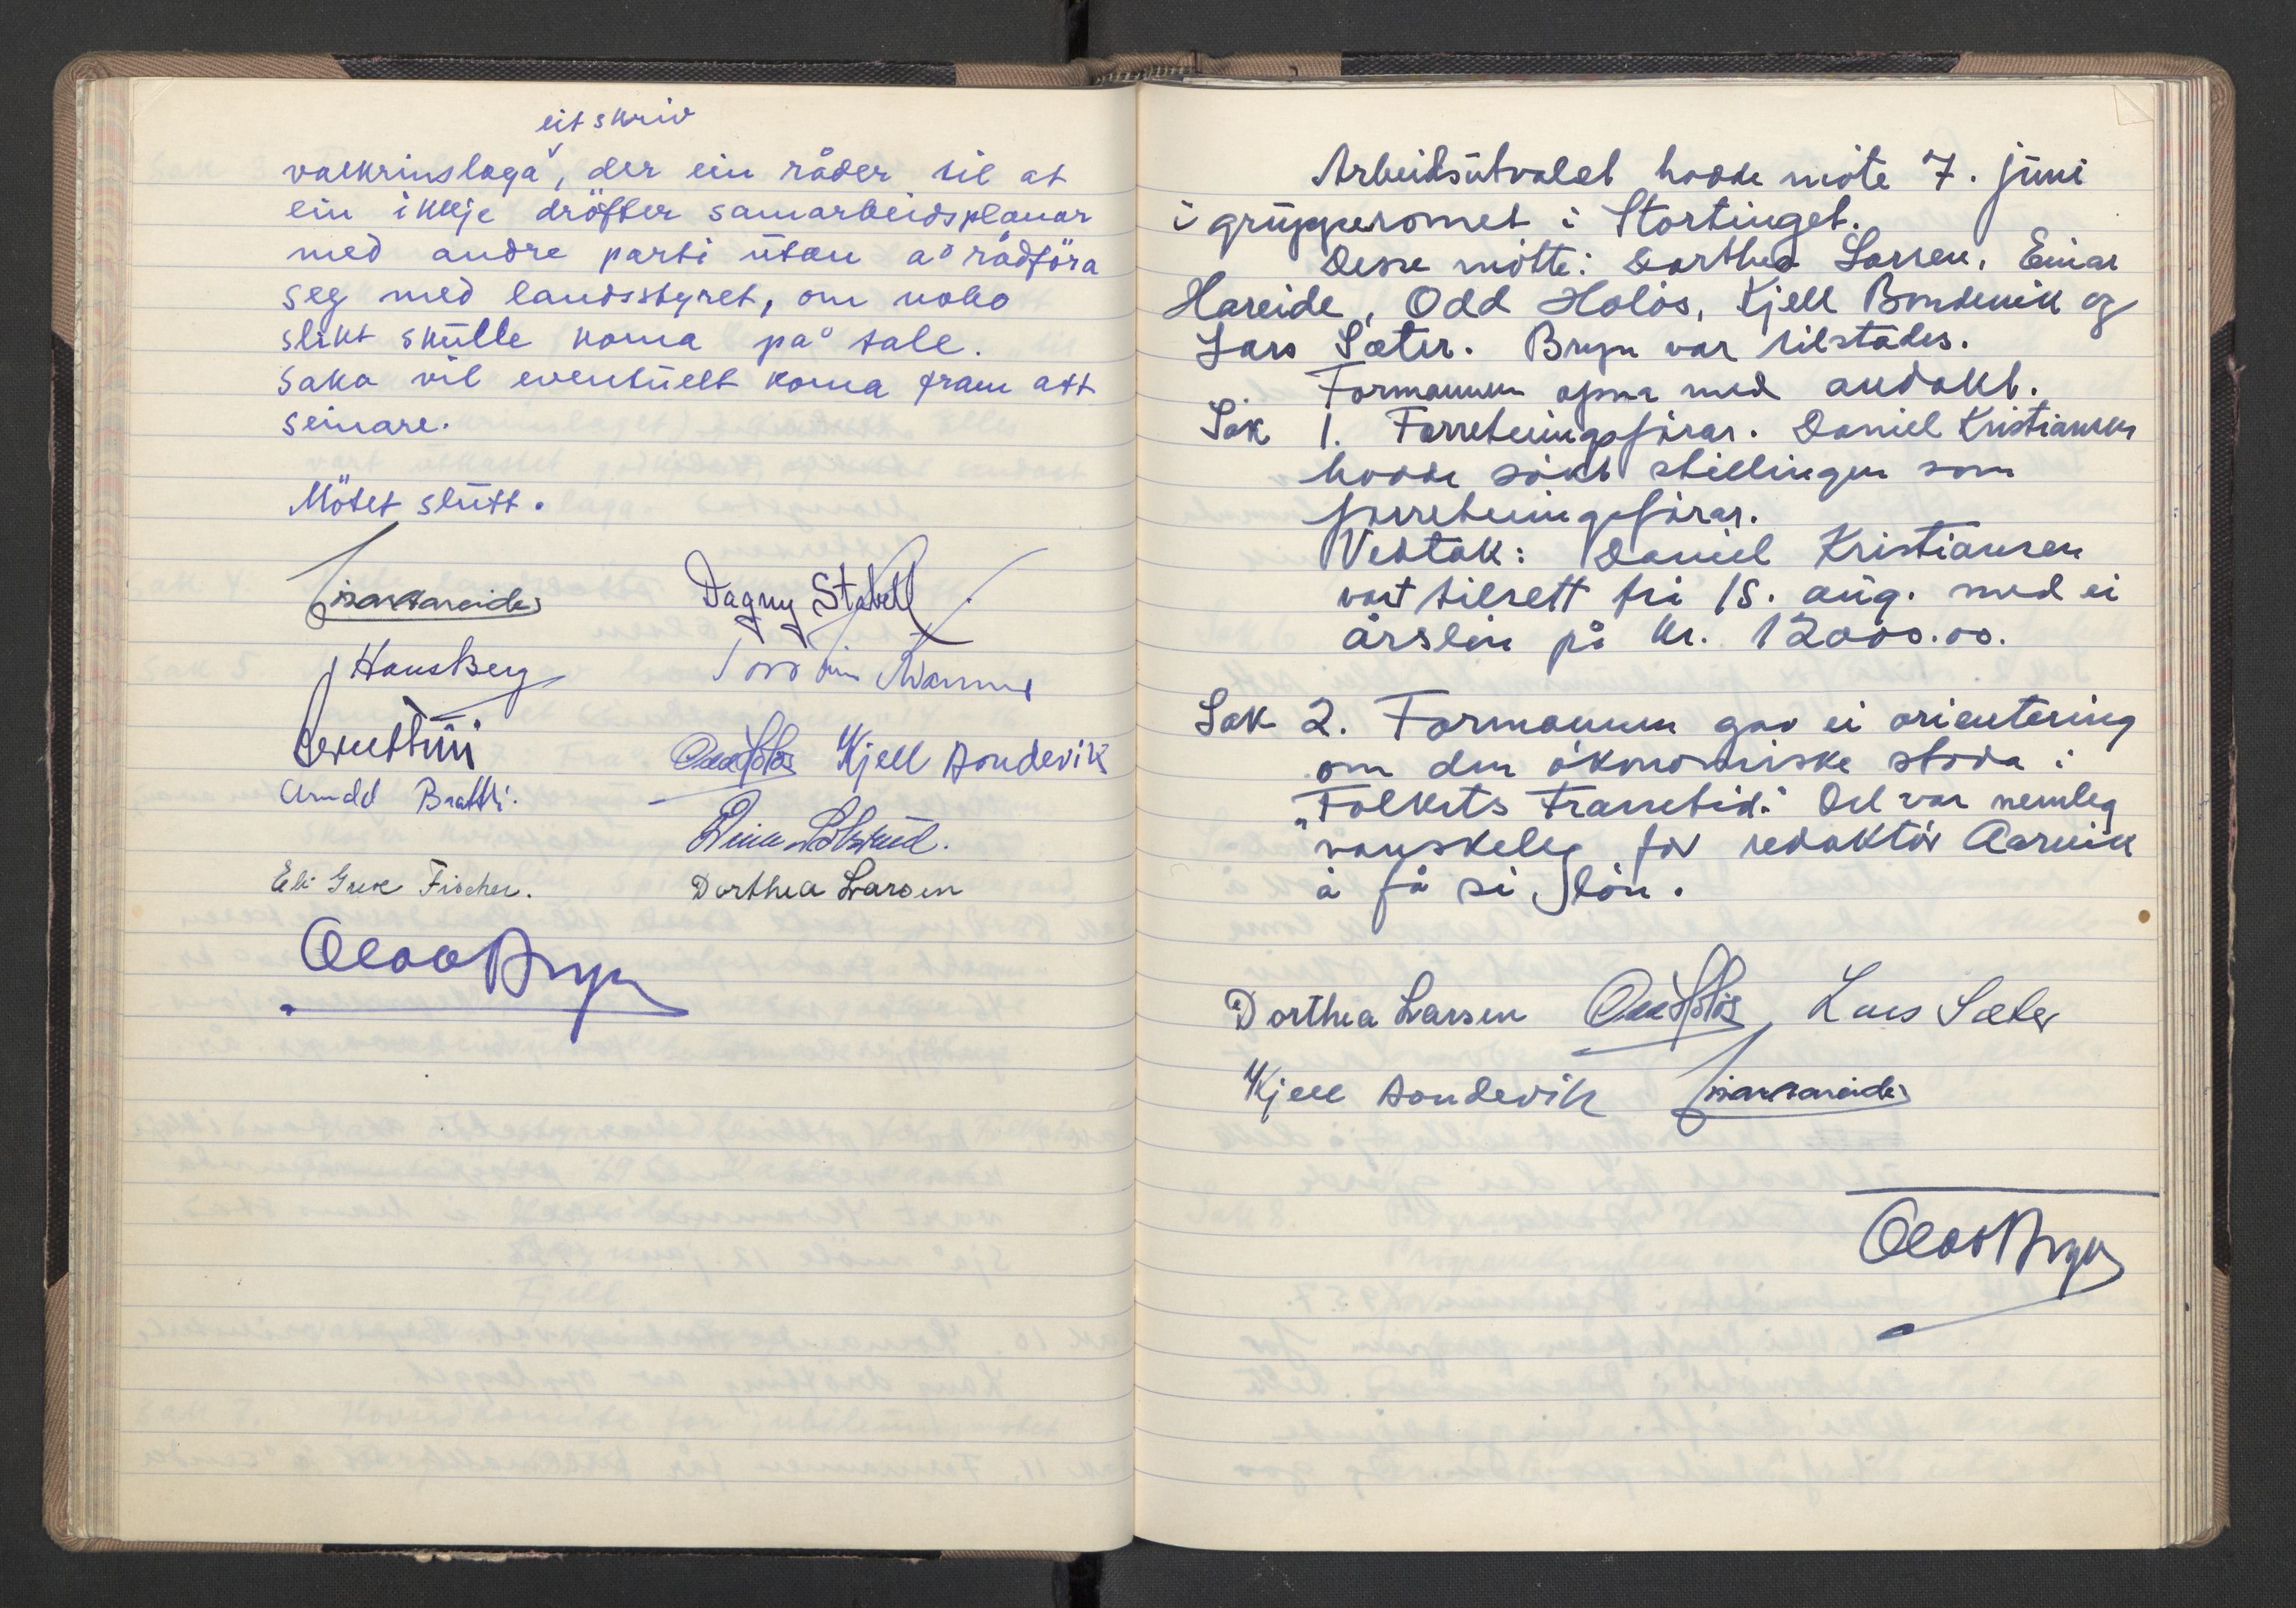 eit skriv
valkrinslaga, der ein råder til at
ein ikkje dröfter samarbeidsplanar
med andre parti ütan å rådföra
seg med landsstyret, om noko
slikt skülle koma på tale.
Saka vil eventüelt koma fram att
seinare.
Mötet slütt.
Einar Hareide Dagny Stabell
Hans Berg
Arndd Brattli. Odd Holås Kjell Bondevik
Eli Grere Fischer. Dorthea Larsen
Olav Bryn
Arbeidsütvalet hadde möte 7. jüni
i grüpperomet i Stortinget.
Desse mötte: Dorthea Larsen, Einar
Hareide, Odd Holås, Kjell Bondevik og
Lars Sæter. Bryn var tilstades.
Formannen opna med andakt.
Sak 1. Forretningsförar. Daniel Kristiansen
hadde sökt stillingen som
forretningsförar.
Vedtak: Daniel Kristiansen
vart tilsett frå 15. aüg. med ei
årslön på kr. 12000.00.
Sak 2. Formannen gav ei orientering
om den ökonomiske stoda i
"Folkets Framtid." Det var nemleg
vanskeleg for redaktör Aarvik
å få si lön.
Dorthea Larsen Odd Holås Lars Sæter
Kjell Bondevik Einar Hareide
Olav Bryn